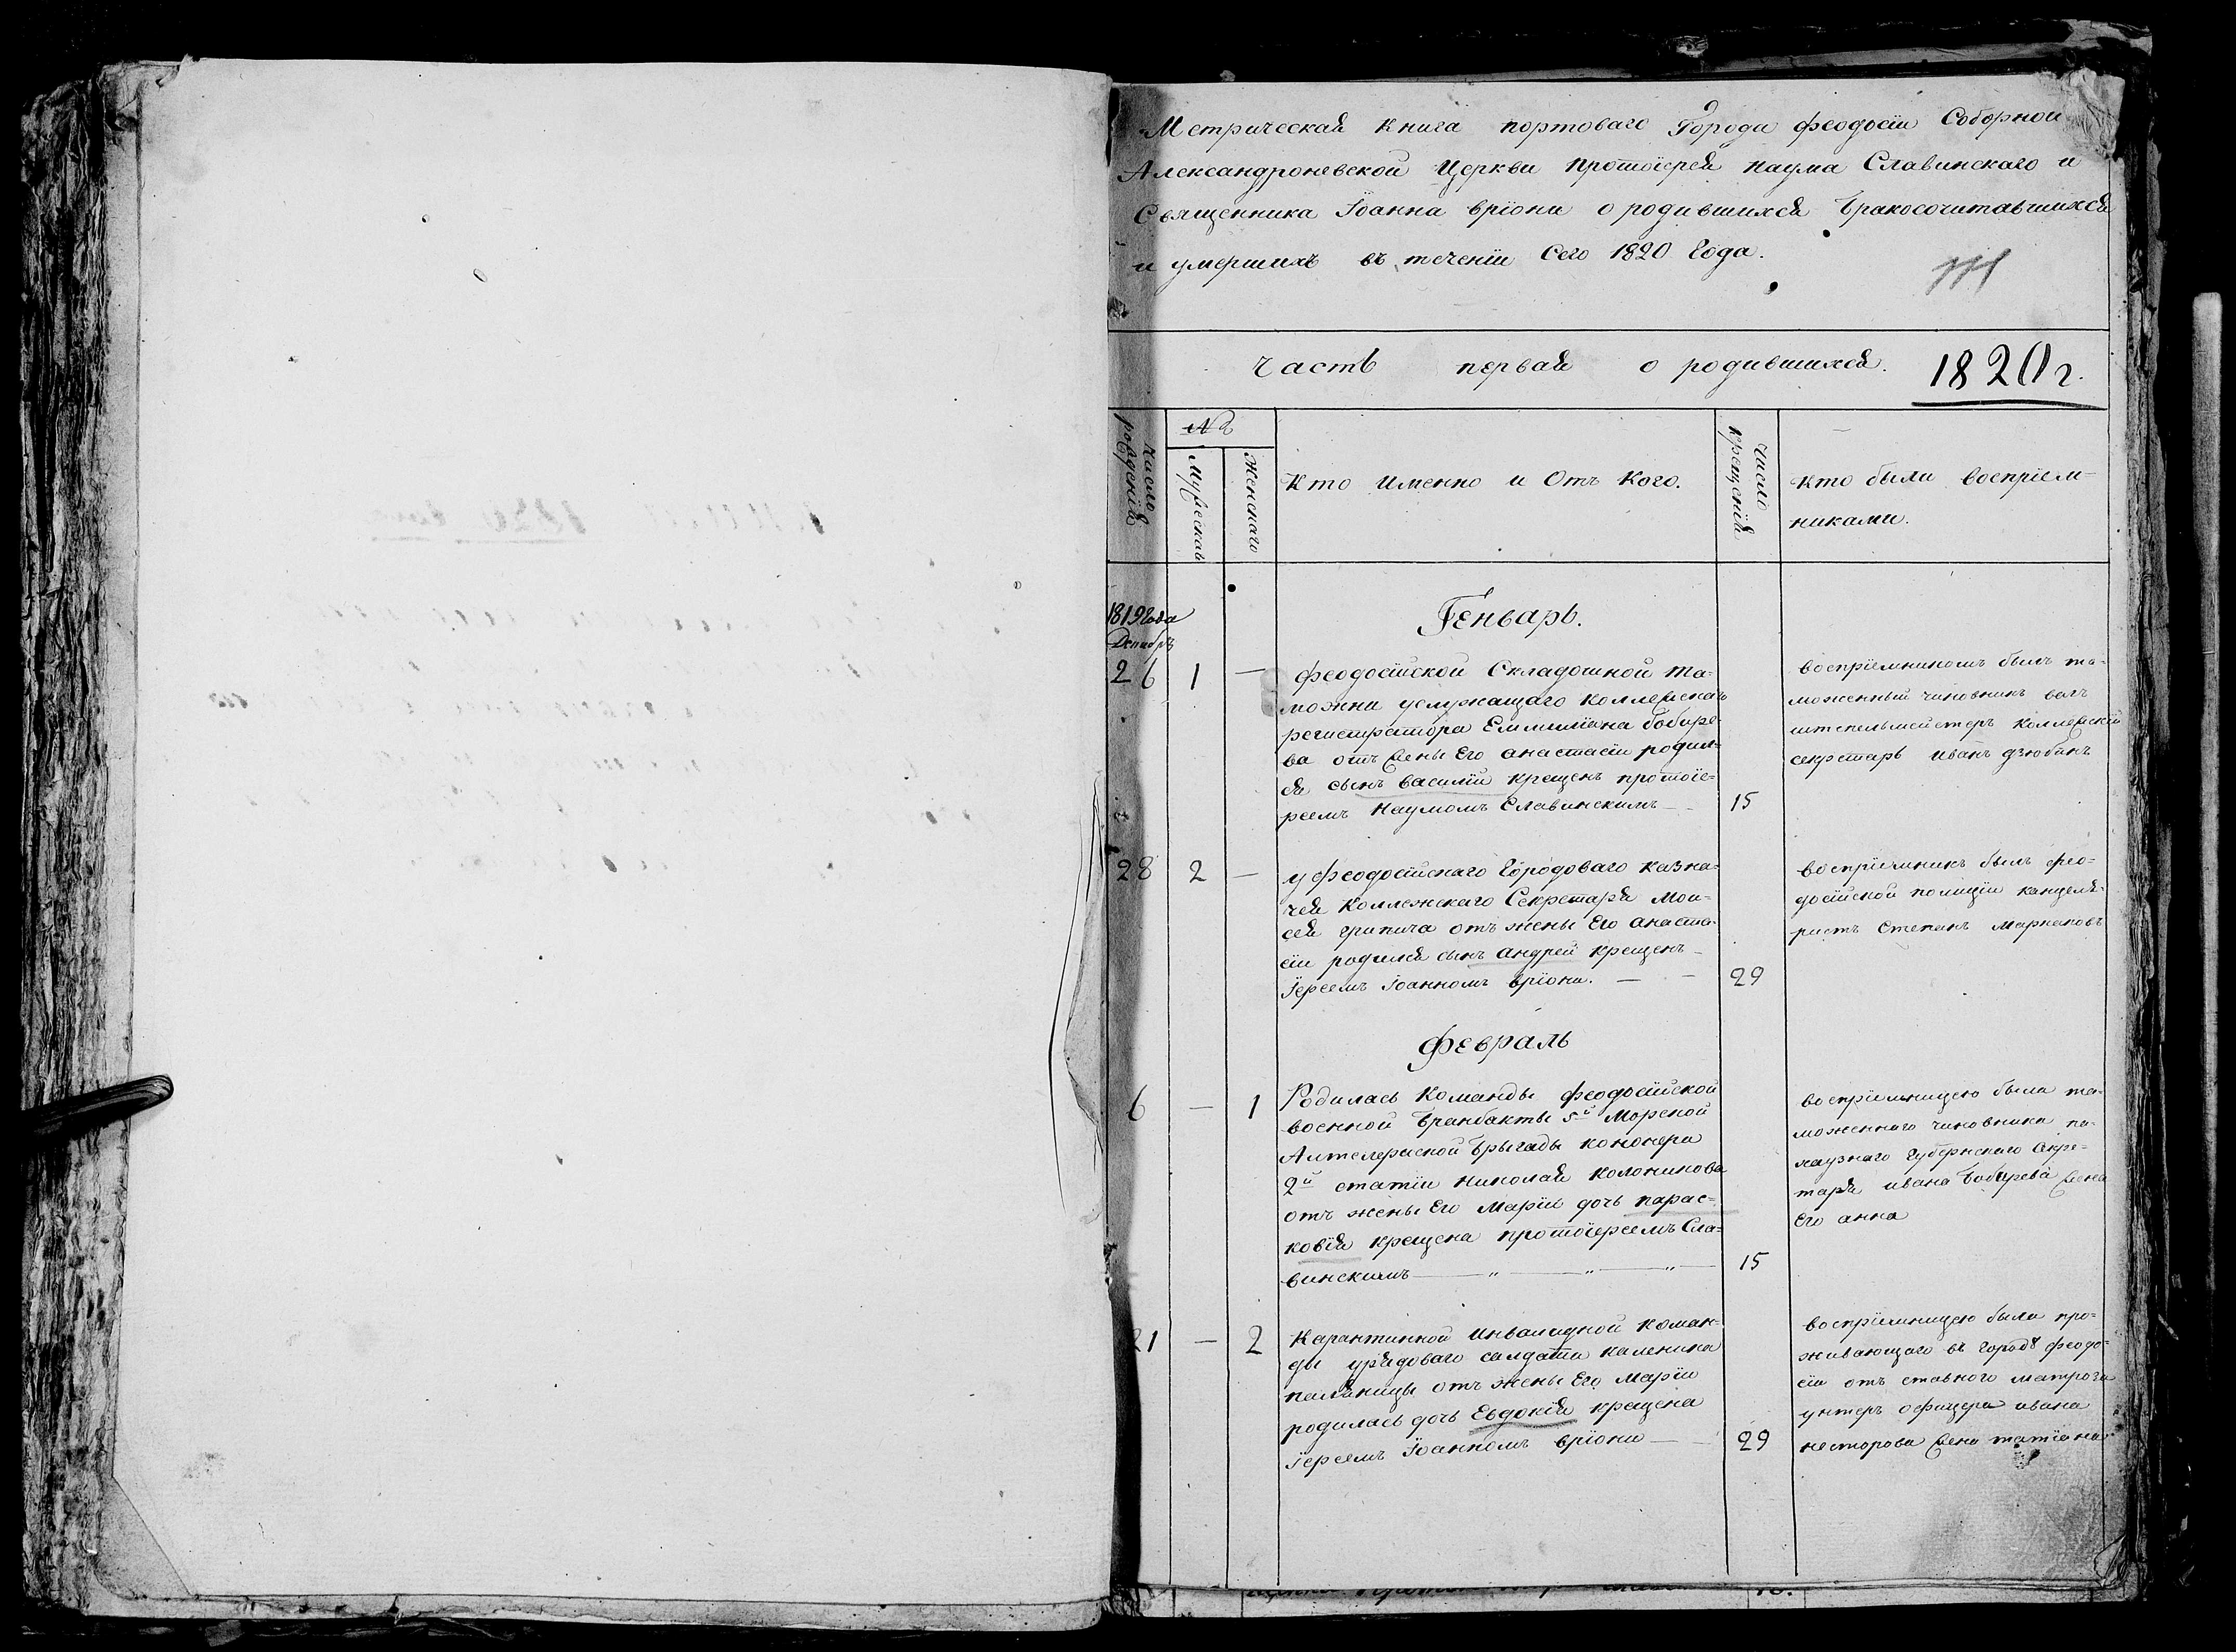 Метрическая книга портоваго Города феодосіи Соборной
Александроневской Церкви протоіерея наума Славинскаго и
Священника Іоанна вріони о родившихся бракосочитавшихся
и умершихъ въ теченіи Сего 1820 Года.
часть первая о родившихся. 1820 г.
число рожденія
№
Мужескаго
Женскаго
Кто Именно и Отъ Кого.
число крещенія
Кто были воспріем-
никами.
1819 Года
Декабрь
Генварь.
26 1 —
феодосійской Складочной та-
можни услужащаго коллежскаго
регистратора Емилліана бобире-
ва отъ жены Его анастасіи родил-
ся сынъ василій крещенъ протоіе-
реемъ Наумомъ Славинскимъ —
15
воспріемникомъ былъ та-
моженный чиновникъ
штемпельмейстеръ коллежскій
секретарь иванъ дзюбинъ
28 2 —
у феодосійскаго Городоваго казна-
чея Коллежскаго Секретаря Мои-
сея грипича отъ жены Его анаста-
сіи родился сынъ андрей крещенъ
Іереемъ Іоанномъ вріони. —
29
воспріемникъ былъ фео-
досійской полиціи канцеля-
ристъ Степанъ Маркаковъ
Февраль
6 — 1
Родилась Команды феодосійской
военной брандвахты 5й Морской
Алтелериской брыгады кононера
2й статіи николая колоникова
отъ жены Его Маріи дочь парас-
ковія крещена протоіереемъ Сла-
винскимъ
15
воспріемницею была та-
моженнаго чиновника па-
каузнаго Губернскаго Скре-
таря ивана бобирева жена
Его анна
21 — 2
Карантинной инвалидной коман-
ды урядоваго салдата каленика
паляницы отъ жены Его Маріи
родилась дочь Евдокія крещена
Іереемъ Іоанномъ вріони —
29
воспріемницею была про-
живающаго въ городѣ феодо-
сіи отъ ставного матроза
унтеръ офицера ивана
несторова жена татіана